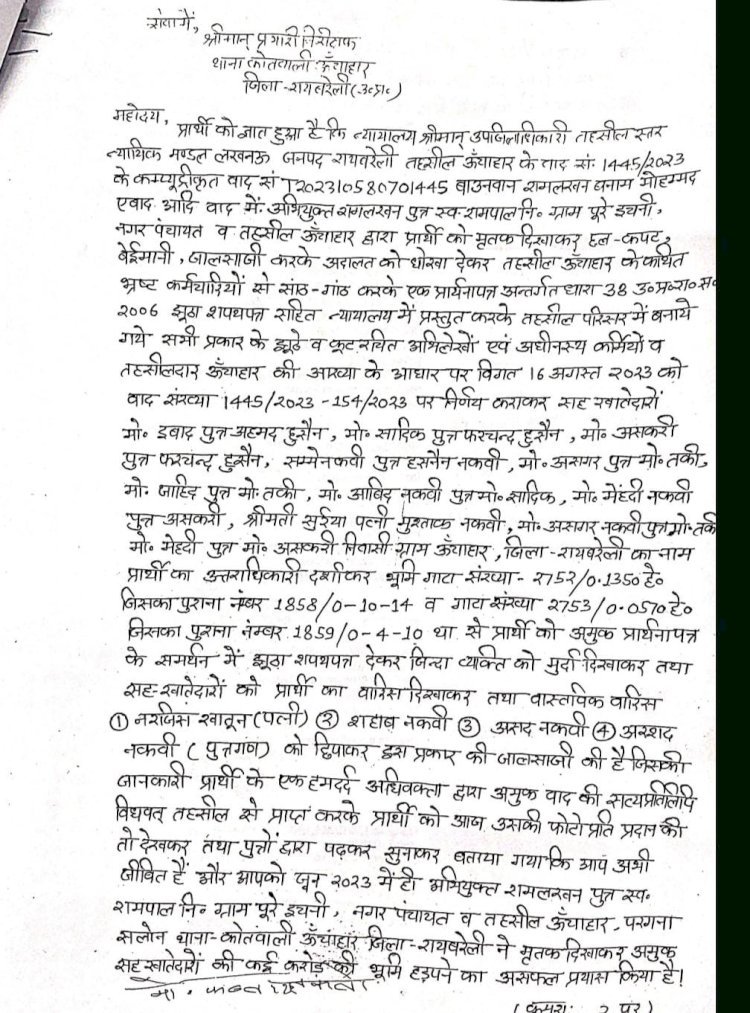 सेवा में,
श्रीमान् प्रभारी निरीक्षक
थाना कोतवाली ऊँचाहार
जिला-रायबरेली (उ०प्र०)
महोदय,
प्रार्थी को ज्ञात हुआ है कि न्यायालय श्रीमान् उपजिलाधिकारी तहसील स्तर
न्यायिक मण्डल लखनऊ जनपद रायबरेली तहसील ऊँचाहार के वाद सं. 1445/2023
के कम्प्यूट्रीकृत वाद सं T202310580701445 बाउनवान रामलखन बनाम मोहम्मद
एबाद आदि वाद में अभियुक्त रामलखन पुत्र स्व. रामपाल नि० ग्राम पूरे इचनी,
नगर पंचायत व तहसील ऊँचाहार द्वारा प्रार्थी को मृतक दिखाकर छल-कपट,
बेईमानी, जालसाजी करके अदालत को धोखा देकर तहसील ऊँचाहार के कथित
भ्रष्ट कर्मचारियों से सांठ-गांठ करके एक प्रार्थनापत्र अन्तर्गत धारा 38 उ०प्र०रा०सं०
2006 झूठा शपथपत्र सहित न्यायालय में प्रस्तुत करके तहसील परिसर में बनाये
गये सभी प्रकार के झूठे व कूटरचित अभिलेखों एवं अधीनस्थ कर्मियों व
तहसीलदार ऊँचाहार की आख्या के आधार पर विगत 16 अगस्त 2023 को
वाद संख्या 1445/2023-154/2023 पर निर्णय कराकर सह खातेदारों
मो० इबाद पुत्र अहमद हुसैन, मो० सादिक पुत्र फरचन्द हुसैन, मो० असकरी
पुत्र फरचन्द हुसैन, सम्मेनकवी पुत्र हसनैन नकवी, मो० असगर पुत्र मो० तकी,
मो. जाहिद पुत्र मो. तकी, मो. आबिद नकवी पुत्र मो० सादिक, मो. मेंहदी नकवी
पुत्र असकरी, श्रीमती सुईया पत्नी मुश्ताक नकवी, मो० असगर नकवी पुत्र मो० तकी
मो० मेंहदी पुत्र मो० असकरी निवासी ग्राम ऊँचाहार, जिला-रायबरेली का नाम
प्रार्थी का उत्तराधिकारी दर्शाकर भूमि गाटा संख्या- 2752/0.1350 हे०
जिसका पुराना नंम्बर 1858/0-10-14 व गाटा संख्या 2753/0.0570 हे०
जिसका पुराना नंम्बर 1859/0-4-10 था से प्रार्थी को अमुक प्रार्थनापत्र
के समर्थन में झूठा शपथपत्र देकर जिन्दा व्यक्ति को मुर्दा दिखाकर तथा
सह-खातेदारों को प्रार्थी का वारिस दिखाकर तथा वास्तविक वारिस
① नरजिस खातून (पत्नी) ② शहाब नकवी ③ असद नकवी ④ अरशद
नकवी (पुत्रगण) को छिपाकर इस प्रकार की जालसाजी की है जिसकी
जानकारी प्रार्थी के एक हमदर्द अधिवक्ता द्वारा अमुक वाद की सत्यप्रतिलिपि
विधिवत् तहसील से प्राप्त करके प्रार्थी को आज उसकी फोटो प्रति प्रदान की
तो देखकर तथा पुत्रों द्वारा पढ़कर सुनाकर बताया गया कि आप अभी
जीवित हैं और आपको जून 2023 में ही अभियुक्त रामलखन पुत्र स्व.
रामपाल नि० ग्राम पूरे इचनी, नगर पंचायत व तहसील ऊँचाहार, परगना
सलोन थाना-कोतवाली ऊँचाहार जिला-रायबरेली ने मृतक दिखाकर अमुक
सह खातेदारों की कई करोड़ की भूमि हड़पने का असफल प्रयास किया है।
(क्रमशः 2 पर)